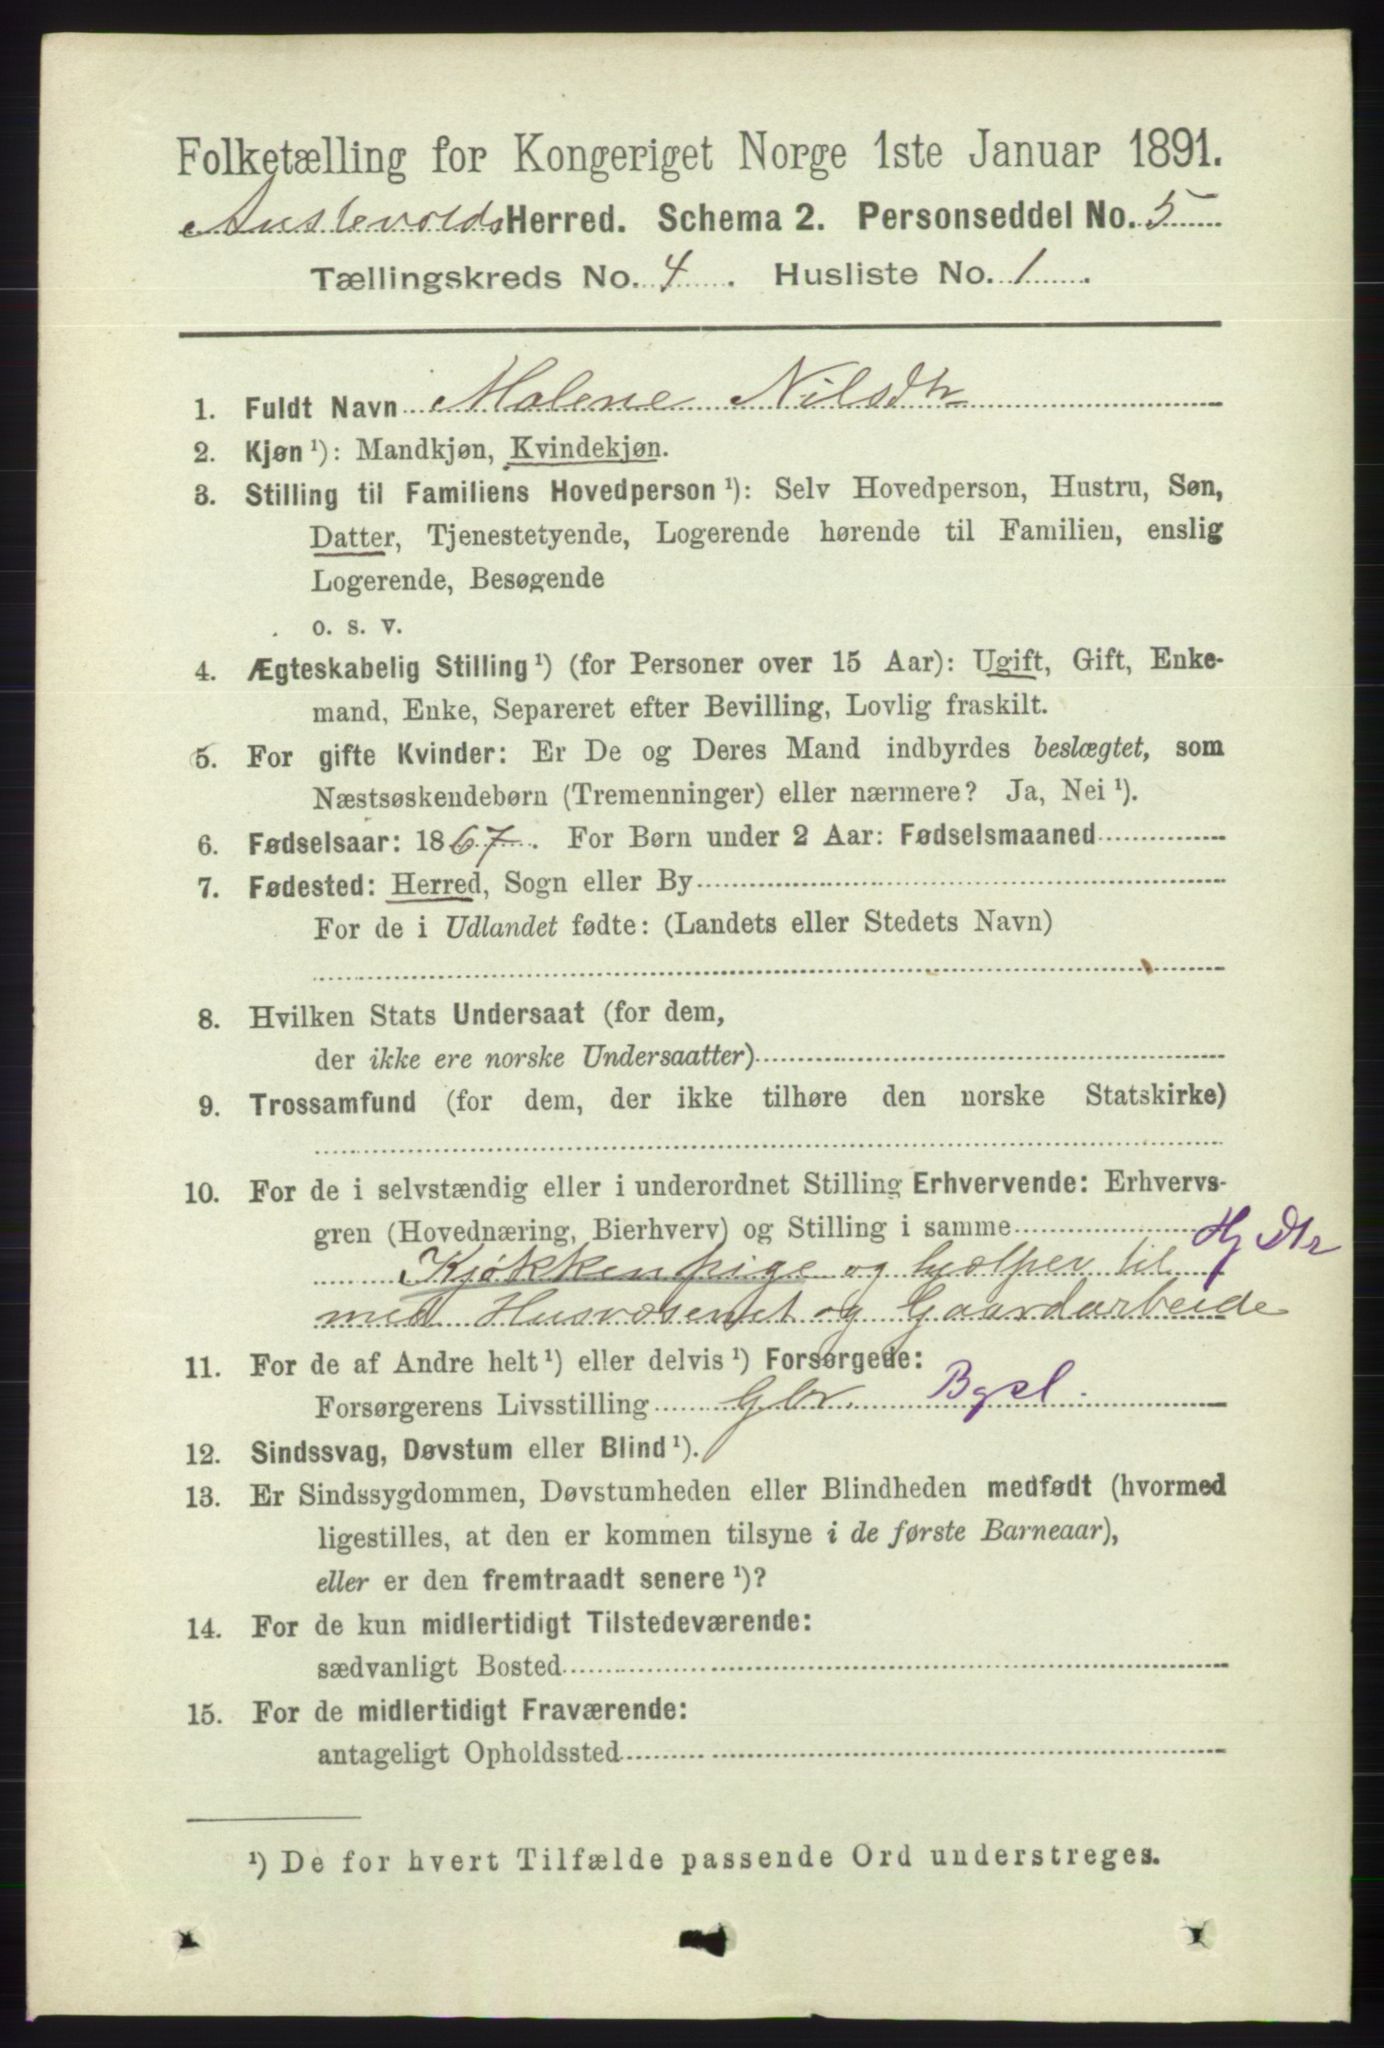 Folketælling for Kongeriget Norge 1ste Januar 1891.
Austevolds Herred. Schema 2. Personseddel No. 5
Tællingskreds No. 4. Husliste No. 1.
1. Fuldt Navn Malene Nilsdtr
2. Kjøn ¹): Mandkjøn, Kvindekjøn.
3. Stilling til Familiens Hovedperson ¹): Selv Hovedperson, Hustru, Søn,
Datter, Tjenestetyende, Logerende hørende til Familien, enslig
Logerende, Besøgende
o. s. v.
4. Ægteskabelig Stilling ¹) (for Personer over 15 Aar): Ugift, Gift, Enke-
mand, Enke, Separeret efter Bevilling, Lovlig fraskilt.
5. For gifte Kvinder: Er De og Deres Mand indbyrdes beslægtet, som
Næstsøskendebørn (Tremenninger) eller nærmere? Ja, Nei ¹).
6. Fødselsaar: 1867. For Børn under 2 Aar: Fødselsmaaned
7. Fødested: Herred, Sogn eller By
For de i Udlandet fødte: (Landets eller Stedets Navn)
8. Hvilken Stats Undersaat (for dem,
der ikke ere norske Undersaatter)
9. Trossamfund (for dem, der ikke tilhøre den norske Statskirke)
10. For de i selvstændig eller i underordnet Stilling Erhvervende: Erhvervs-
gren (Hovednæring, Bierhverv) og Stilling i samme Hj Dtr
Kjøkkenpige og hælper til
med Husvæsenet og Gaardarbeide
11. For de af Andre helt ¹) eller delvis ¹) Forsørgede:
Forsørgerens Livsstilling Gbr. Bgsl.
12. Sindssvag, Døvstum eller Blind ¹).
13. Er Sindssygdommen, Døvstumheden eller Blindheden medfødt (hvormed
ligestilles, at den er kommen tilsyne i de første Barneaar),
eller er den fremtraadt senere ¹)?
14. For de kun midlertidigt Tilstedeværende:
sædvanligt Bosted
15. For de midlertidigt Fraværende:
antageligt Opholdssted
¹) De for hvert Tilfælde passende Ord understreges.